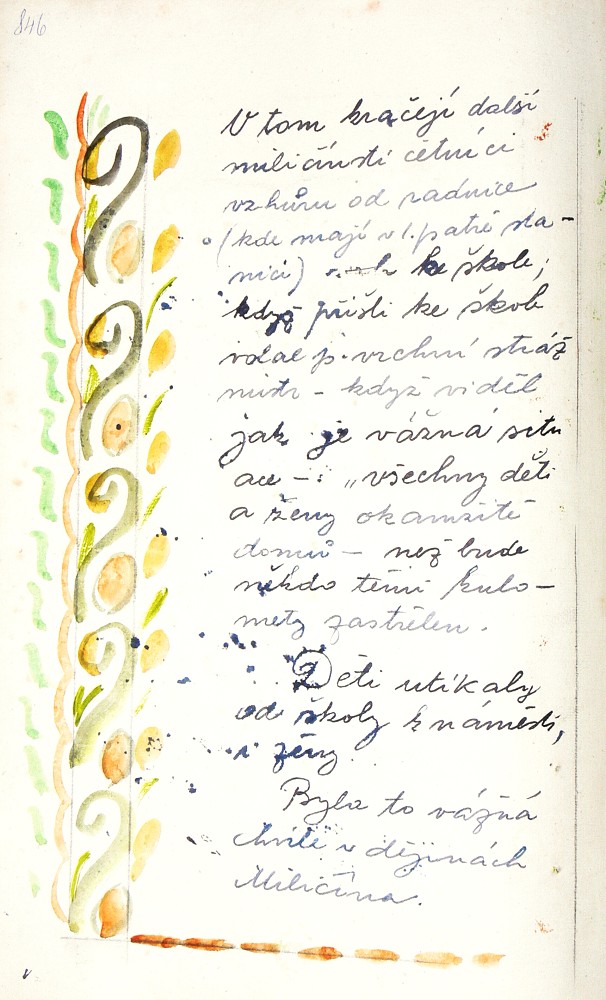 846
V tom kračejí další
miličínští četníci
vzhůru od radnice
(kde mají v 1. patře sta-
nici) ke škole;
když přišli ke škole
volal p. vrchní stráž
mistr - když viděl
jak je vážná situ
ace -: „všechny děti
a ženy okamžitě
domů - než bude
někdo těmi kulo-
mety zastřelen.
Děti utíkaly
od školy k náměstí,
i ženy.
Byla to vážná
chvíle v dějinách
Miličína.